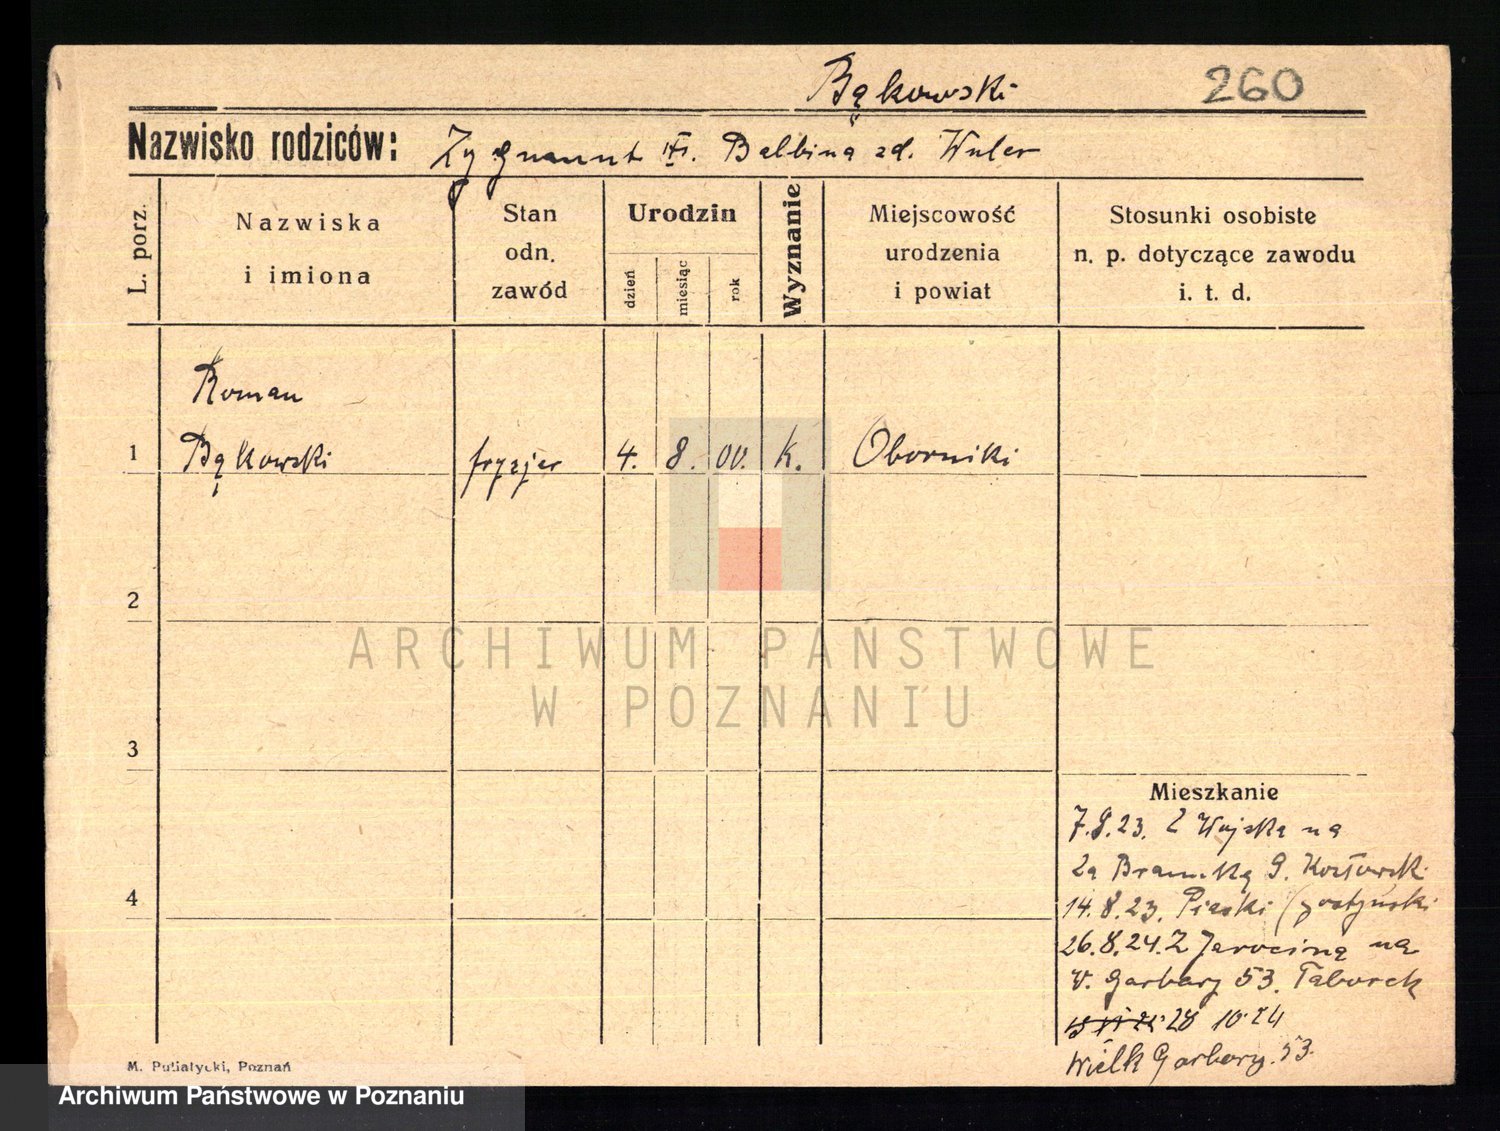 Bąkowski
260
Nazwisko rodziców: Zygmunt i Balbina zd.
L. porz.
Nazwiska
i imiona
Stan
odn.
zawód
Urodzin
dzień
miesiąc
rok
Wyznanie
Miejscowość
urodzenia
i powiat
Stosunki osobiste
n. p. dotyczące zawodu
i. t. d.
Roman
1 Bąkowski fryzjer 4. 8. 00. k. Oborniki
2
3
4
Mieszkanie
7.8.23. Z Wojska na
2a G.
14.8.23. Piaski (gostyński
26.8.24. Z Jarocina na
W. Garbary 53. Taborek
28 10.24
Wielk Garbary 53.
M. Putiatycki, Poznań
ARCHIWUM PAŃSTWOWE
W POZNANIU
Archiwum Państwowe w Poznaniu